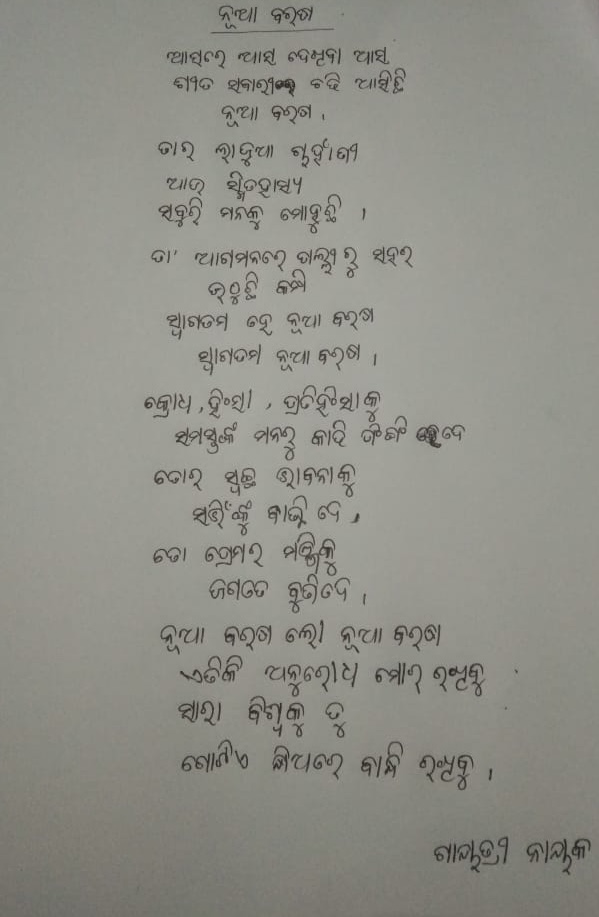 ନୂଆ ବରଷ
ଆସରେ ଆସ ଦେଖିବା ଆସ
ଶୀତ ସବାରୀରେ ଚଢି ଆସିଛି
ନୂଆ ବରଷ ।
ତାର ଲାଜୁଆ ଚାହାଁଣୀ
ଆଉ ସ୍ମିତହାସ୍ୟ
ସବୁରି ମନକୁ ମୋହୁଛି ।
ତା' ଆଗମନରେ ପଲ୍ଲୀରୁ ସହର
ଉଠୁଛି କମ୍ପି
ସ୍ୱାଗତମ ହେ ନୂଆ ବରଷ
ସ୍ୱାଗତମ ନୂଆ ବରଷ ।
କ୍ରୋଧ, ହିଂସା, ପ୍ରତିହିଂସାକୁ
ସମସ୍ତଙ୍କ ମନରୁ କାଢି ଫିଙ୍ଗି ଦେ
ତୋର ସ୍ୱଚ୍ଛ ଭାବନାକୁ
ସଭିଁଙ୍କୁ ବାଣ୍ଟି ଦେ ।
ତୋ ପ୍ରେମର ମଞ୍ଜିକୁ
ଜଗତେ ବୁଣିଦେ ।
ନୂଆ ବରଷ ଲୋ ନୂଆ ବରଷ
ଏତିକି ଅନୁରୋଧ ମୋର ରଖିବୁ
ସାରା ବିଶ୍ୱକୁ ତୁ
ଗୋଟିଏ ଖିଅରେ ବାନ୍ଧି ରଖିବୁ ।
ଗାୟତ୍ରୀ ନାୟକ